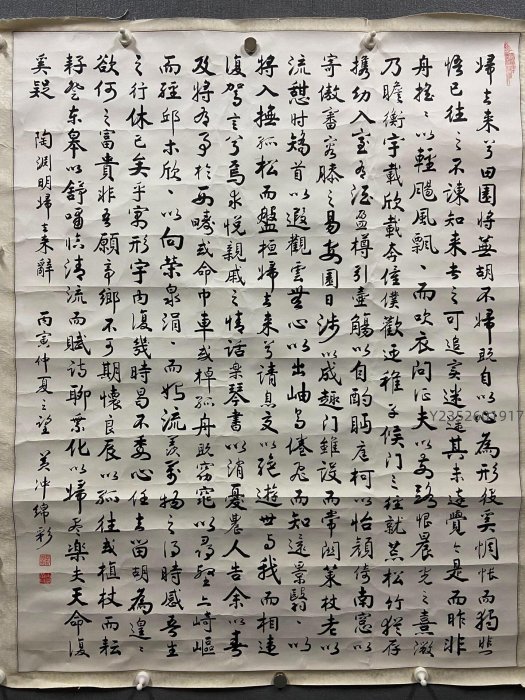 歸去來兮田園將蕪胡不歸既自以心為形役奚惆悵而獨悲
悟已往之不諫知來者之可追實迷途其未遠覺今是而昨非
舟搖、以輕颺風飄、而吹衣問征夫以前路恨晨光之熹微
乃瞻衡宇載欣載奔僮僕歡迎稚子候門三徑就荒松竹猶存
攜幼入室有酒盈樽引壺觴以自酌眄庭柯以怡顏倚南窗以
寄傲審容膝之易安園日涉以成趣門雖設而常關策杖老以
流憩時矯首以遐觀雲無心以出岫鳥倦飛而知還景翳、以
將入撫孤松而盤桓歸去來兮請息交以絕遊世與我而相違
復駕言兮焉求悅親戚之情話樂琴書以消憂農人告余以春
及將有事於西疇或命巾車或棹孤舟既窈窕以尋壑亦崎嶇
而經邱木欣、以向榮泉涓、而始流羨萬物之得時感吾生
之行休已矣乎寓形宇內復幾時曷不委心任去留胡為遑、
欲何之富貴非吾願帝鄉不可期懷良辰以孤往或植杖而耘
耔登東皋以舒嘯臨清流而賦詩聊乘化以歸盡樂夫天命復
奚疑 陶淵明歸去來辭 丙寅仲夏之望
Y2352601917